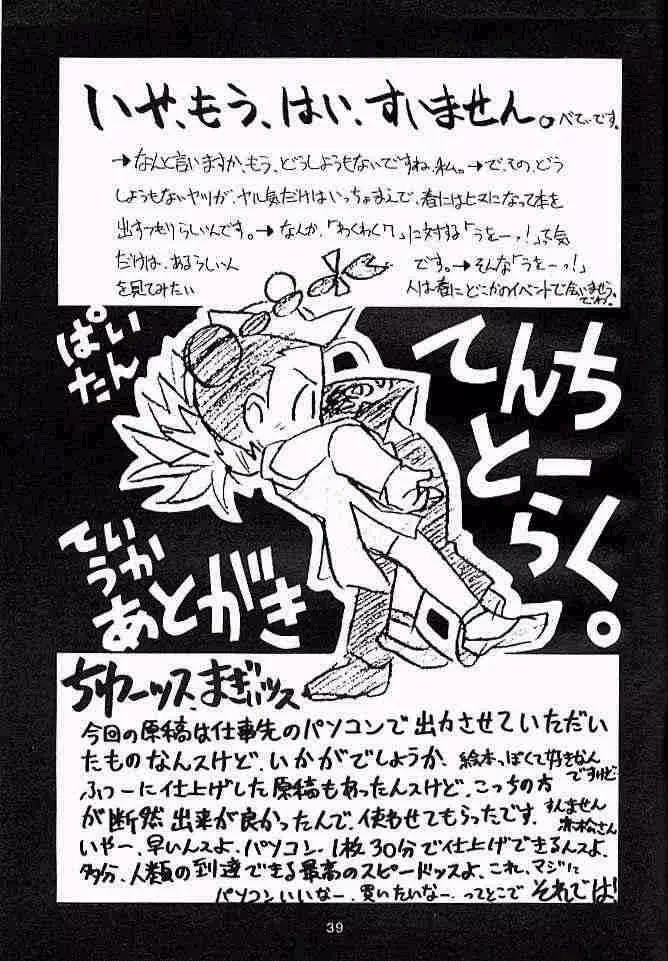 いや、もう、はい、すいません。べてぃです。
→なんと言いますか、もう、どうしようもないですね、私。→で、その、どう
しようもないヤツが、ヤル気だけはいっちょまえで、春にはヒマになって本を
出すつもりらしいんです。→なんか、「わくわく7」に対する「うをーっ！」って気
だけは、あるらしいん です。→そんな「うをーっ！」
を見てみたい 人は春にどこかのイベントで会いませう。
でわ。
ぱい
たん
てんち
とーく。
らく。
ていうか
あとがき
ちゅーッス、まぎぃッス
今回の原稿は仕事先のパソコンで出力させていただい
たものなんスけど、いかがでしょうか、絵本っぽくて好きなん
ですけど
ふつーに仕上げした原稿もあったんスけど、こっちの方
が断然出来が良かったんで、使わせてもらったです、すんません
赤松さん
いやー、早いんスよ、パソコン、1枚30分で仕上げできるんスよ、
多分、人類の到達できる最高のスピードッスよ、これ、マジに
パソコンいいなー、買いたいなー、ってとこで それでは！
39